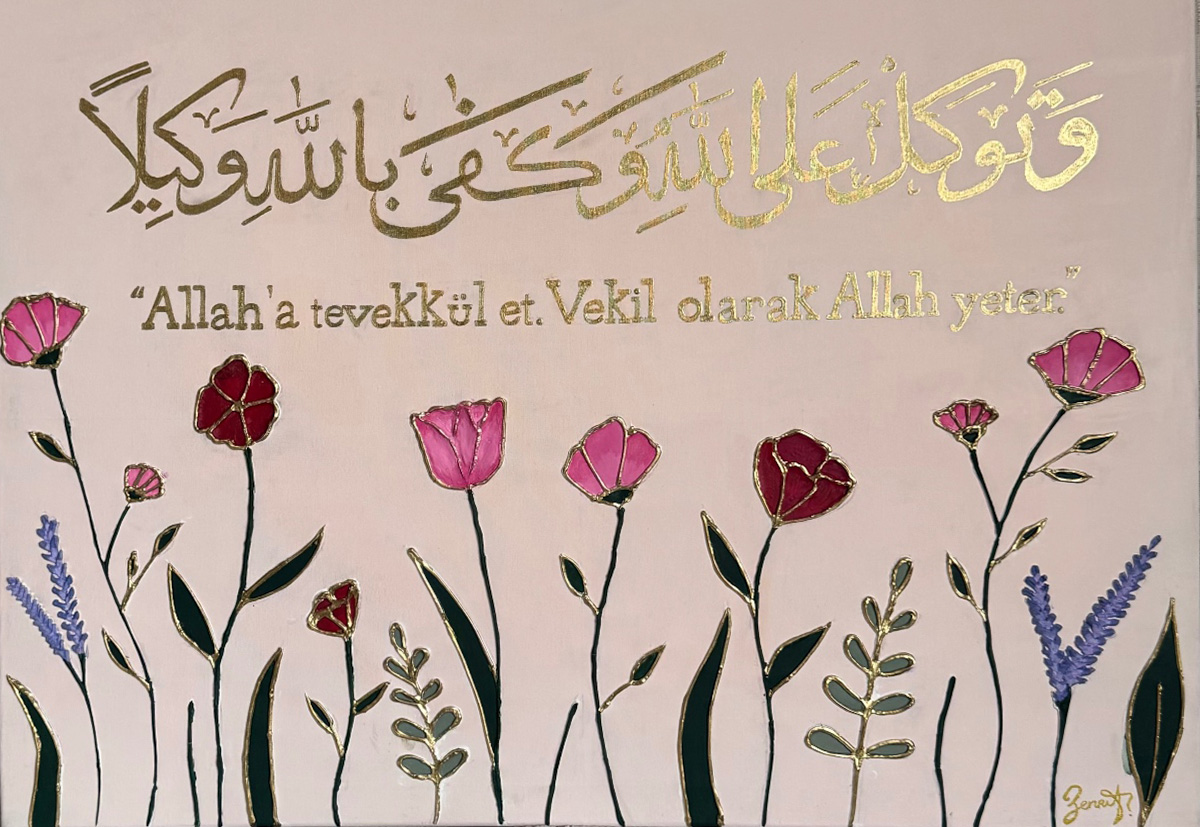 وَتَوَكَّلْ عَلَى اللَّهِ وَكَفَى بِاللَّهِ وَكِيلًا
“Allah'a tevekkül et. Vekil olarak Allah yeter.”